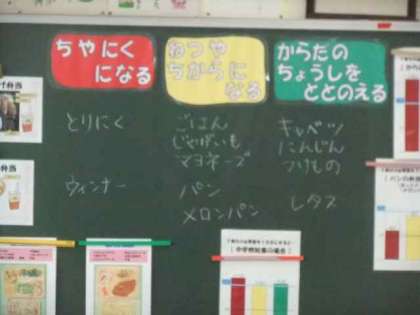 ちやにく
になる
ねつや
ちからに
なる
からだの
ちょうしを
ととのえる
とりにく
ウィンナー
ごはん
じゃがいも
マヨネーズ
パン
メロンパン
キャベツ
にんじん
つけもの
レタス
弁当
弁当